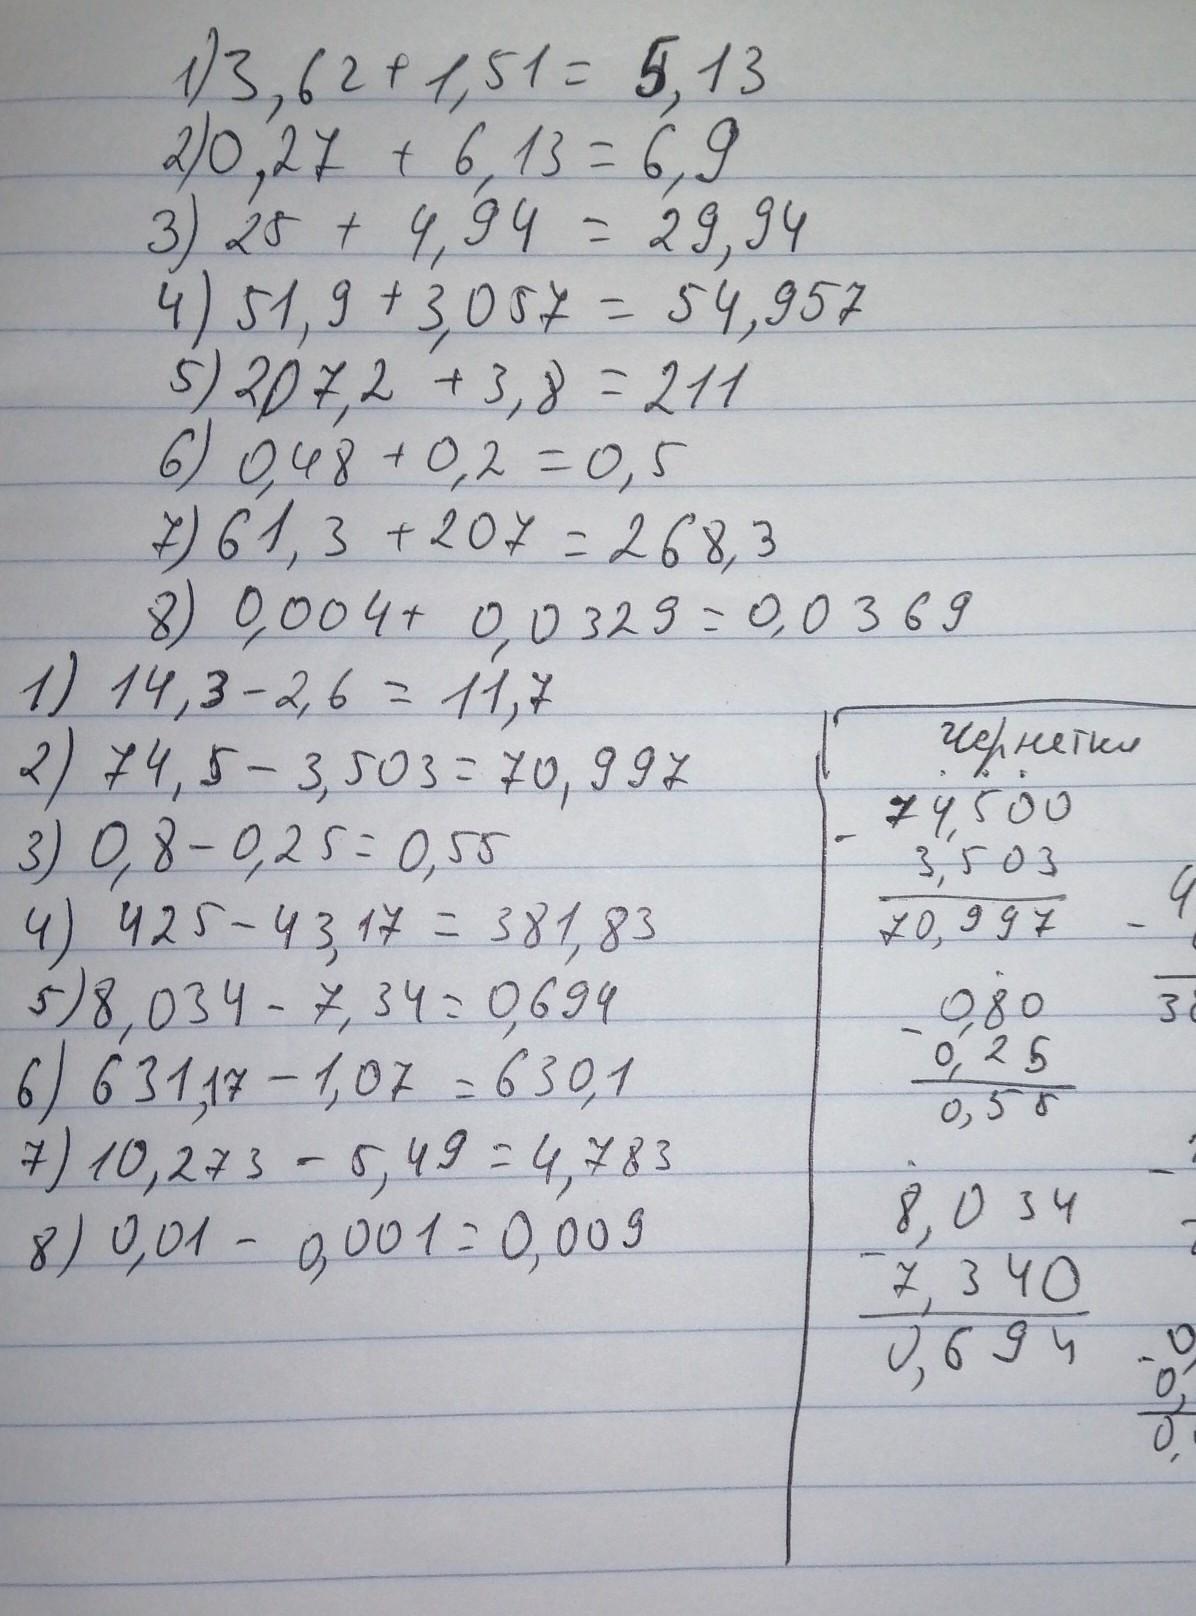 1) 3,62 + 1,51 = 5,13
2) 0,27 + 6,13 = 6,9
3) 25 + 4,94 = 29,94
4) 51,9 + 3,057 = 54,957
5) 207,2 + 3,8 = 211
6) 0,48 + 0,2 = 0,5
7) 61,3 + 207 = 268,3
8) 0,004 + 0,0329 = 0,0369
1) 14,3 - 2,6 = 11,7
2) 74,5 - 3,503 = 70,997
3) 0,8 - 0,25 = 0,55
4) 425 - 43,17 = 381,83
5) 8,034 - 7,34 = 0,694
6) 631,17 - 1,07 = 630,1
7) 10,273 - 5,49 = 4,783
8) 0,01 - 0,001 = 0,009
Чернетка
- 74,500
3,503
70,997
- 0,80
0,25
0,55
- 8,034
7,340
0,694